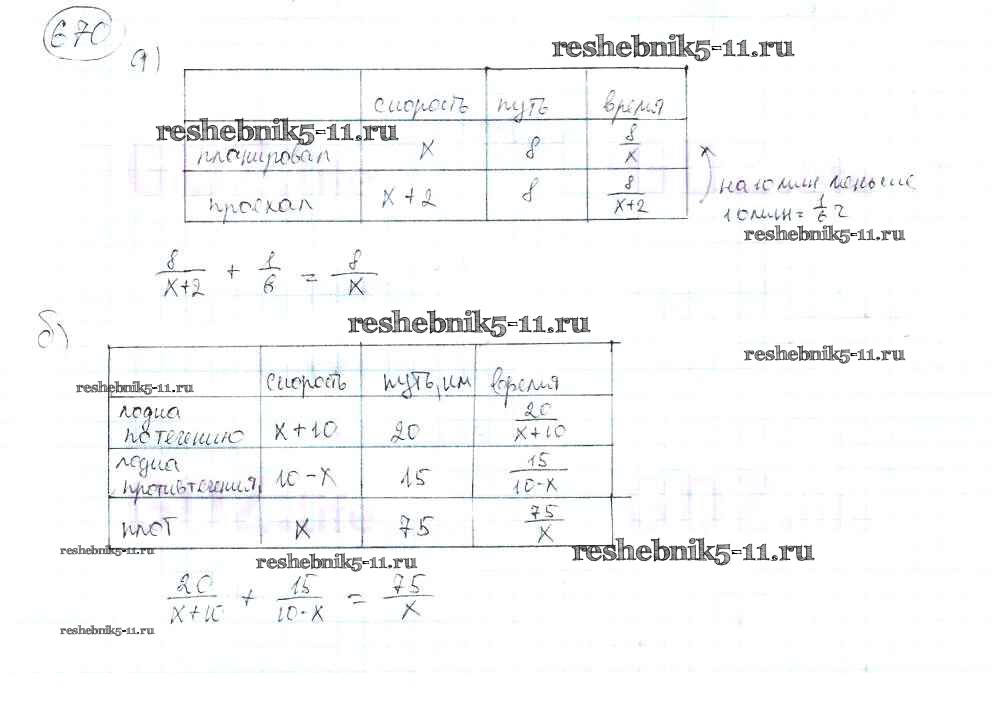 670
reshebnik5-11.ru
а)
скорость путь время
reshebnik5-11.ru
планировал x 8 8/x
проехал x+2 8 8/(x+2)
на 10 мин меньше
10 мин = 1/6 ч
reshebnik5-11.ru
8/(x+2) + 1/6 = 8/x
б)
reshebnik5-11.ru
reshebnik5-11.ru
скорость путь, км время
reshebnik5-11.ru
лодка
по течению x+10 20 20/(x+10)
лодка
против течения 10-x 15 15/(10-x)
плот x 75 75/x
reshebnik5-11.ru
reshebnik5-11.ru
reshebnik5-11.ru
20/(x+10) + 15/(10-x) = 75/x
reshebnik5-11.ru